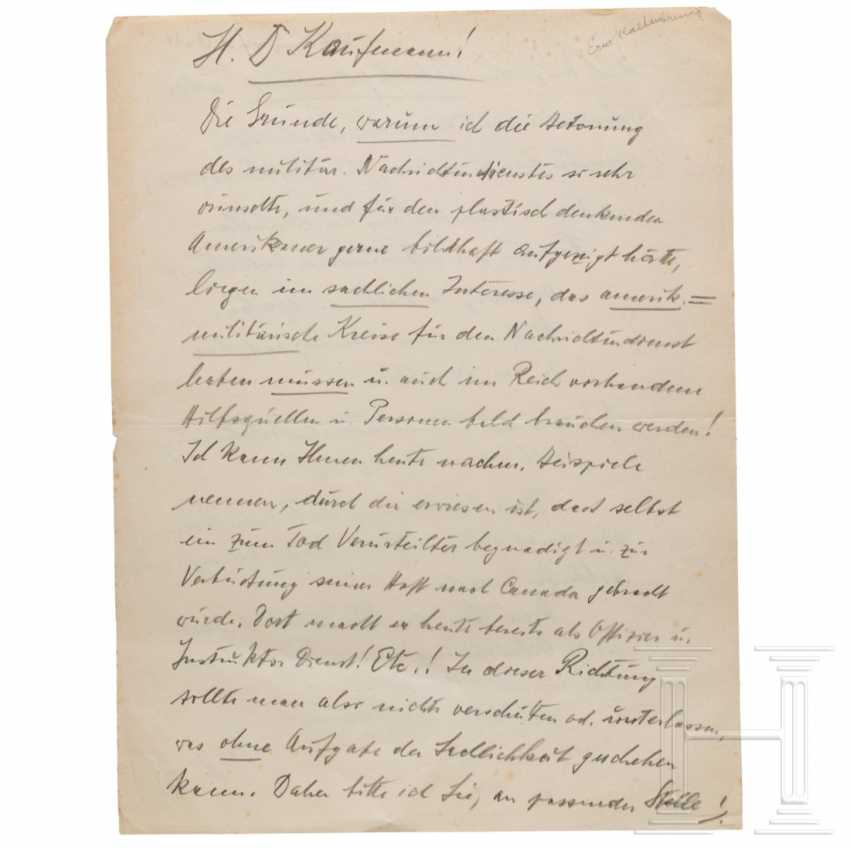 Ernst Kaltenbrunner
H. D Kaufmann!
Die Gründe, warum ich die Betonung
des militär. Nachrichtendienstes so sehr
wünschte, und für den plastisch denkenden
Amerikaner gerne bildhaft aufgezeigt hätte,
liegen im sachlichen Interesse, das amerik. =
militärische Kreise für den Nachrichtendienst
haben müssen u. auch im Reich vorhandene
Hilfsquellen u. Personen bald brauchen werden!
Ich kann Ihnen heute nachm. Beispiele
nennen, durch die erwiesen ist, dass selbst
ein zum Tod Verurteilter begnadigt u. zur
Verbüssung seiner Haft nach Canada gebracht
wurde. Dort macht er heute bereits als Offizier u.
Instruktor Dienst! Etc.! In dieser Richtung
sollte man also nichts verschütten od. unterlassen,
was ohne Aufgabe der Sachlichkeit geschehen
kann. Daher bitte ich Sie, an passender Stelle!